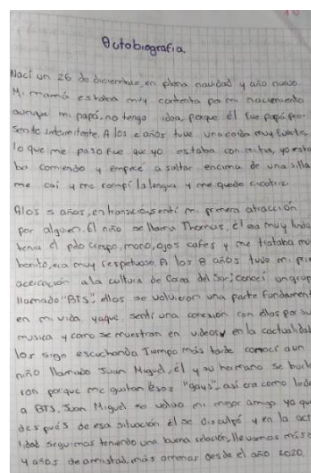 Autobiografía.
Nací un 26 de diciembre, en plena navidad y año nuevo
Mi mamá estaba muy contenta por mi nacimiento
aunque mi papá, no tengo idea, porque él fue papá pre-
sente intermitente. A los años tuve una caída muy fuerte,
lo que me pasó fue que yo estaba con mi tía, yo esta
ba comiendo y empecé a saltar encima de una silla
me caí y me rompí la lengua y me quedó cicatriz.
A los 5 años, en transición sentí mi primera atracción
por alguien. El niño se llama Thomas, él era muy lindo
tenía el pelo crespo, mono, ojos cafés y me trataba muy
bonito, era muy respetuoso. A los 8 años tuve mi pri
acercación a la cultura de Corea del Sur. Conocí un grup
llamado "BTS", ellos se volvieron una parte fundament
en mi vida ya que, sentí una conexión con ellos por su
música y como se muestran en videos y en la actualidad
los sigo escuchando. Tiempo más tarde conocí a un
niño llamado Juan Miguel, él y su hermano se burla
ron porque me gustan esos "gays", así era como
a BTS. Juan Miguel se volvió mi mejor amigo ya que
después de esa situación él se disculpó y en la act
idad seguimos teniendo una buena relación, llevamos más d
4 años de amistad, más o menos desde el año 2020.